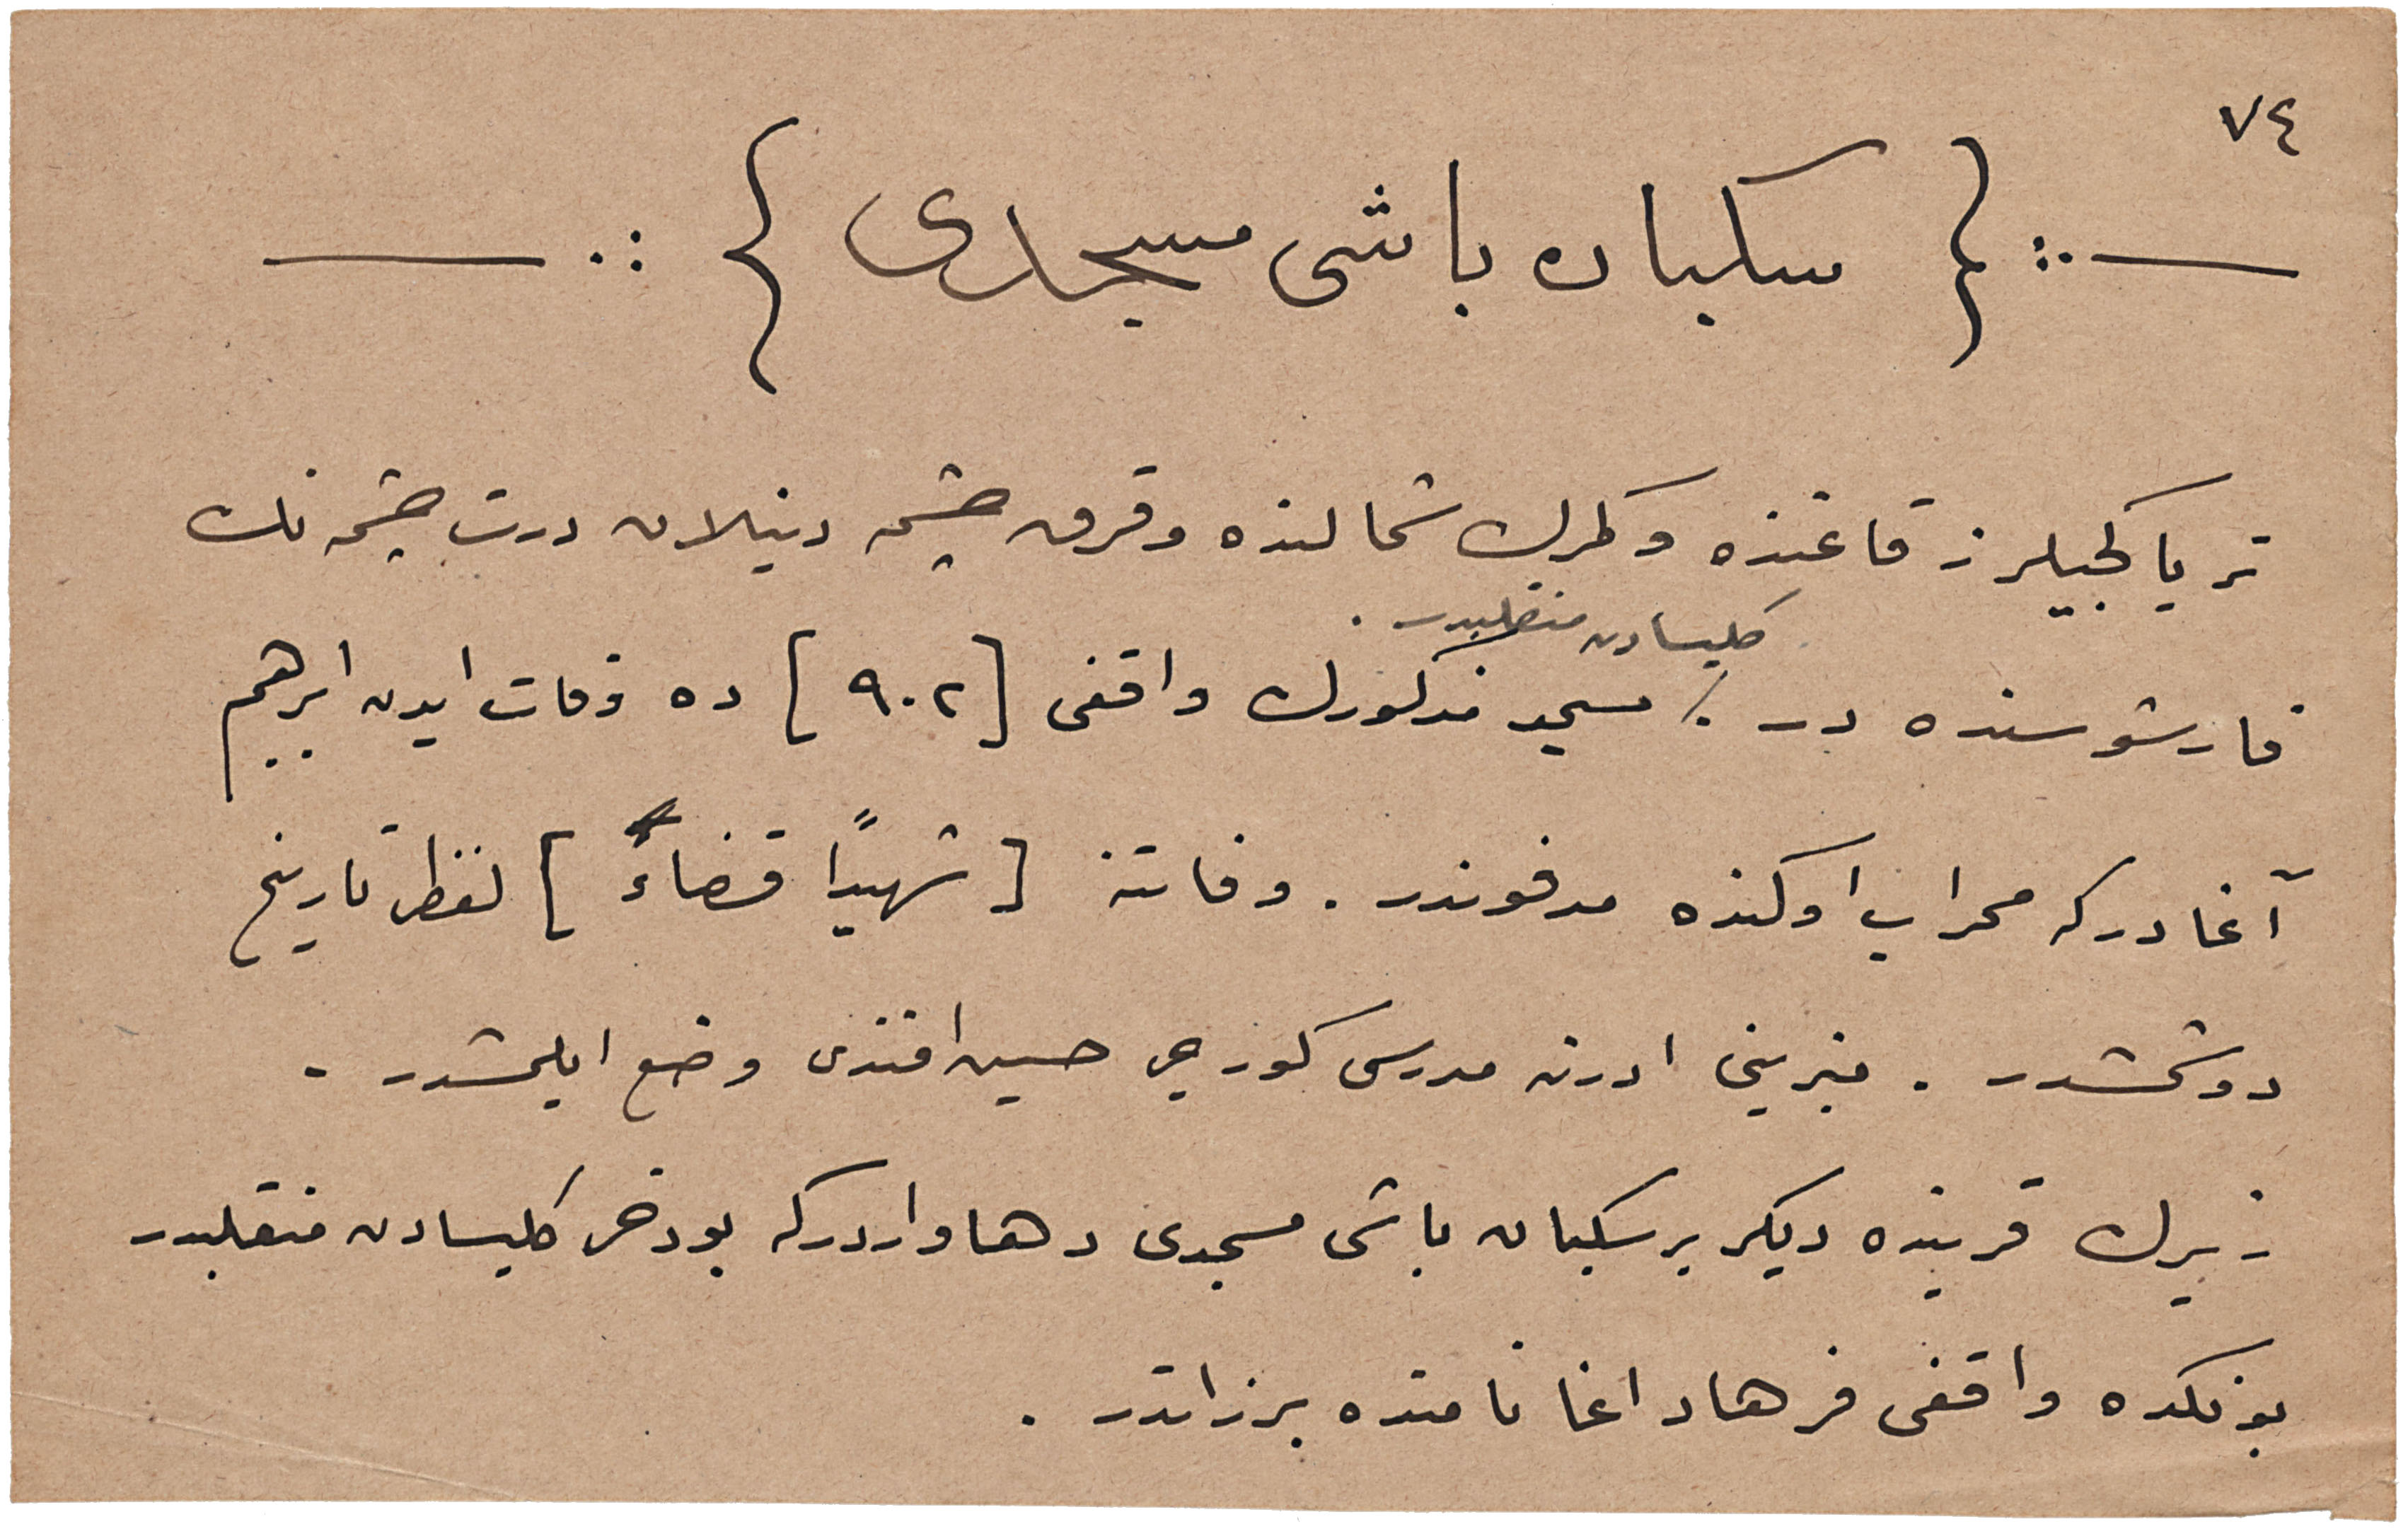 ٧٤
{ سكبان باشی مسجدی }
ترياكجيلر زقاغنده و كمرك شمالنده و قرق چشمه دينيلان درت چشمه نك
كليسادن منقلبدر .
قارشوسنده در . مسجد مذكورك واقفی [ ٩٠٢ ] ده وفات ايدن ابرهيم
آغادركه محراب اوكنده مدفوندر . وفاتنه [ شهيدًا قضاءً ] لفظلری تاريخ
دوشمشدر . منبرينی ادرنه مدرسی كورجی حسين افندی وضع ايلمشدر .
زيرك قربنده ديكر بر سكبان باشی مسجدی دها واردركه بودخی كليسادن منقلبدر
بونكده واقفی فرهاد اغا نامنده بر ذاتدر .